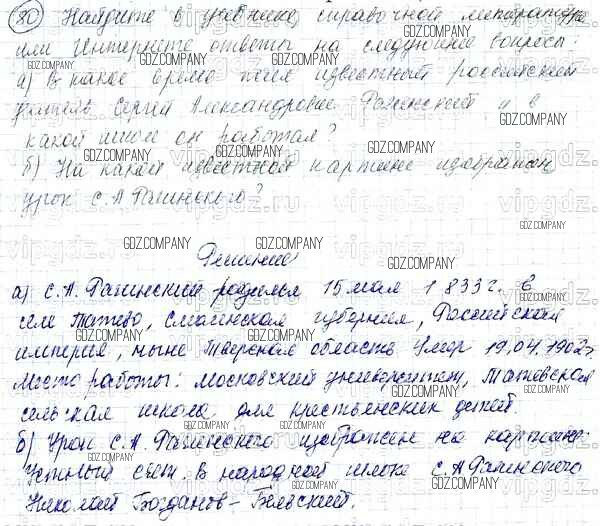 80 Найдите в учебнике, справочной литературе
или Интернете ответы на следующие вопросы:
а) В какое время жил известный российский
учитель Сергей Александрович Рачинский и в
какой школе он работал?
б) На какой известной картине изображён
урок С.А Рачинского?
Решение
а) С.А. Рачинский родился 15 мая 1833г. в
селе Татево, Смоленская губерния, Российская
империя, ныне Тверская область Умер 19.04.1902г.
Место работы: Московский университет, Татевская
сельская школа для крестьянских детей.
б) Урок С.А. Рачинского изображен на картине
Устный счет. В народной школе С.А Рачинского
Николай Богданов-Бельский.